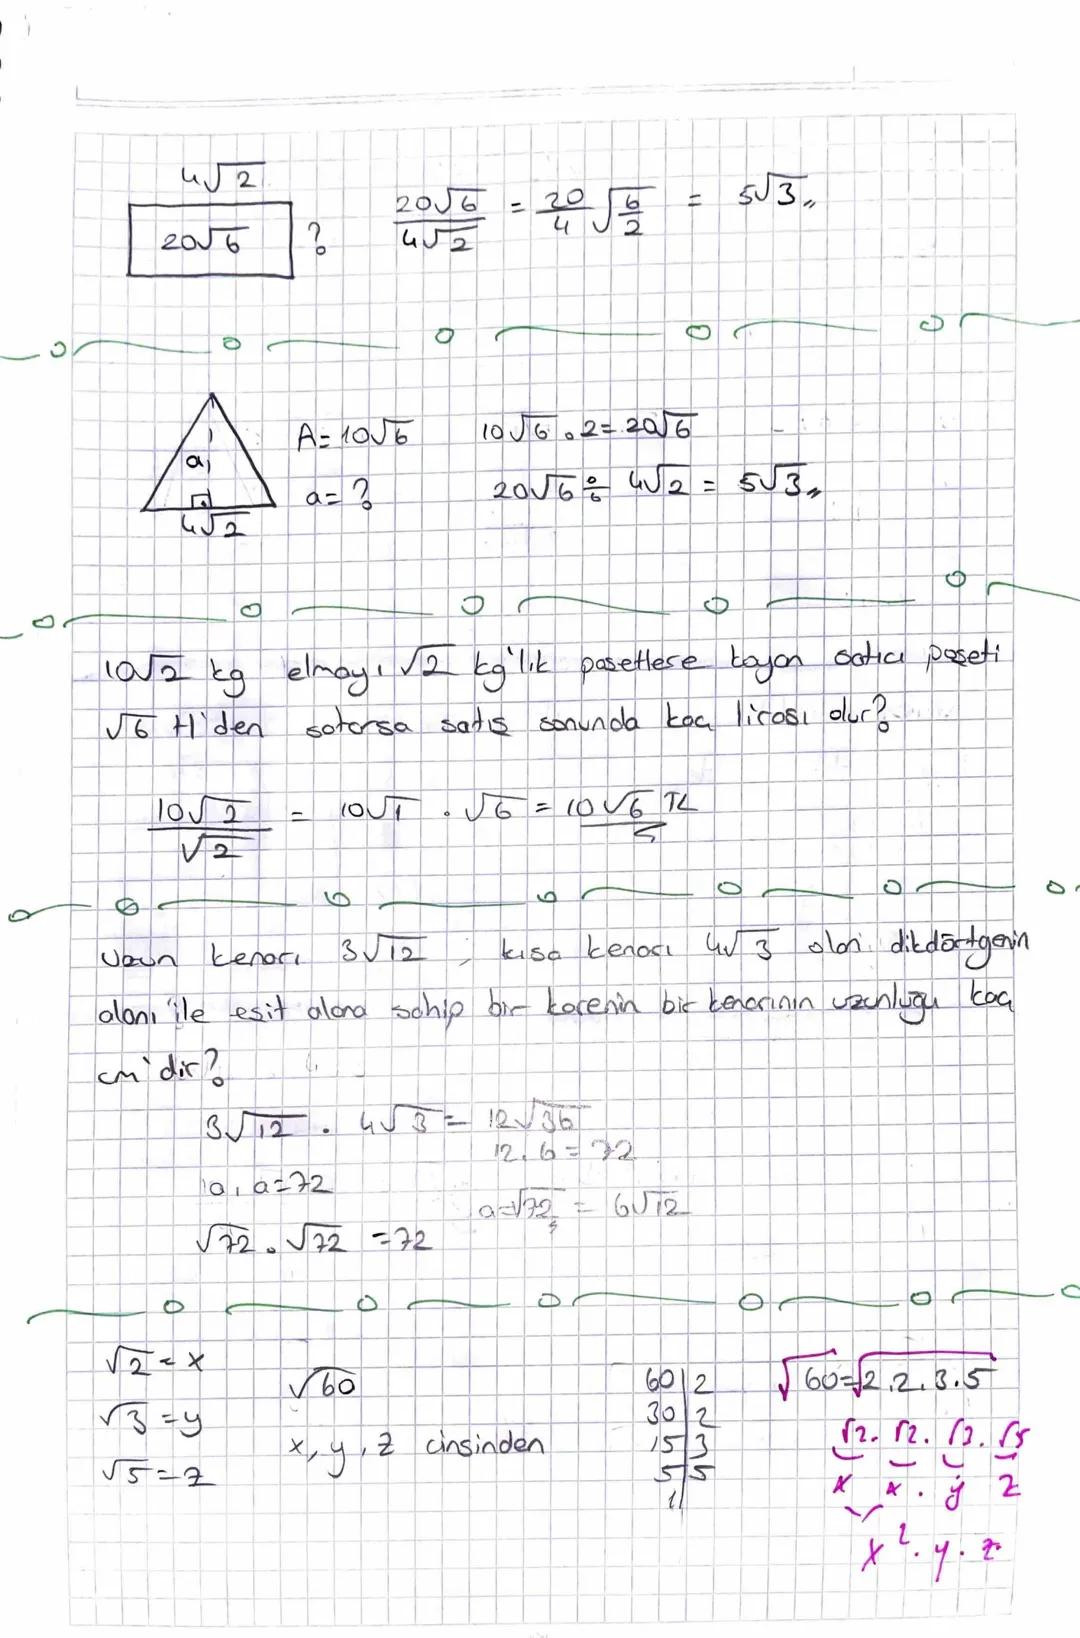 4√2
20√6 ? 20√6/4√2 = 20/4 √6/2 = 5√3,,
A=10√6 10√6 . 2 = 20√6
a
a=? 20√6 ÷ 4√2 = 5√3,,
4√2
10√2 kg elmayı √2 kg'lık poşetlere koyan satıcı poşeti
√6 tl'den satarsa satış sonunda kaç lirası olur?
10√2/√2 = 10√1 . √6 = 10√6 TL
Uzun kenarı 3√12, kısa kenarı 4√3 olan dikdörtgenin
alanı ile eşit alana sahip bir karenin bir kenarının uzunluğu kaç
cm'dir?
3√12 . 4√3 = 12√36
12.6=72
a.a=72
a=√72 = 6√12
√72 . √72 = 72
√2=x
√3=y
√5=z
√60
x, y, z cinsinden
60|2
30|2
15|3
5|5
1|
√60=√2.2.3.5
√2. √2. √3. √5
x x . y z
x².y.z